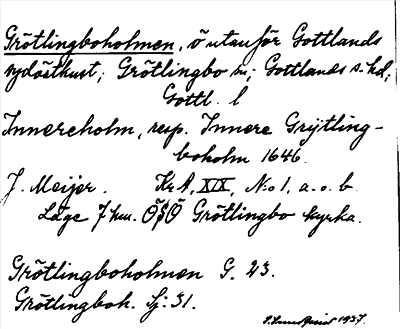 Grötlingboholmen, ö utanför Gottlands
sydöstkust; Grötlingbo sn; Gottlands s. hd;
Gottl. l
Innereholm, resp. Innere Grijtling-
boholm 1646.
J. Meijer. Kr A, XIX, No 1, a. o. b.
Läge 7 km. ÖSÖ Grötlingbo kyrka.
Grötlingboholmen G. 23.
Grötlingbok. Sj. 31.
1937.